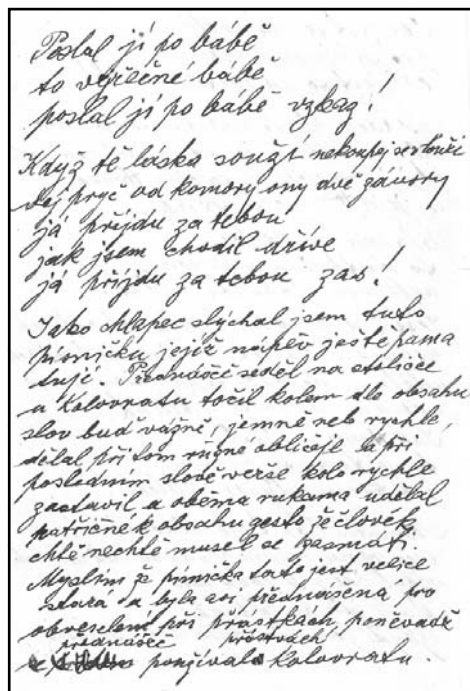 Poslal jí po bábě
to výřečné bábě
poslal jí po bábě vzkaz!
Když tě láska souží nekoupej se v louži
dej pryč od komory ony dvě závory
já přijdu za tebou
jak jsem chodil dříve
já přijdu za tebou zas!
Jako chlapec slýchal jsem tuto
písničku jejíž nápěv ještě pama
tuji. Přednášeč seděl na stoličce
u Kolovratu točil kolem dlo obsahu
slov buď vážně, jemně neb rychle,
dělal při tom různé obličeje a při
posledním slově verše kolo rychle
zastavil a oběma rukama udělal
patřičné k obsahu gesto že člověk
chtě nechtě musel se zasmáti
Myslím že písnička tato jest velice
stará a byla asi přednášena pro
obveselení při přástkách, poněvadž
přednášeč přástvách
používal kolovratu.